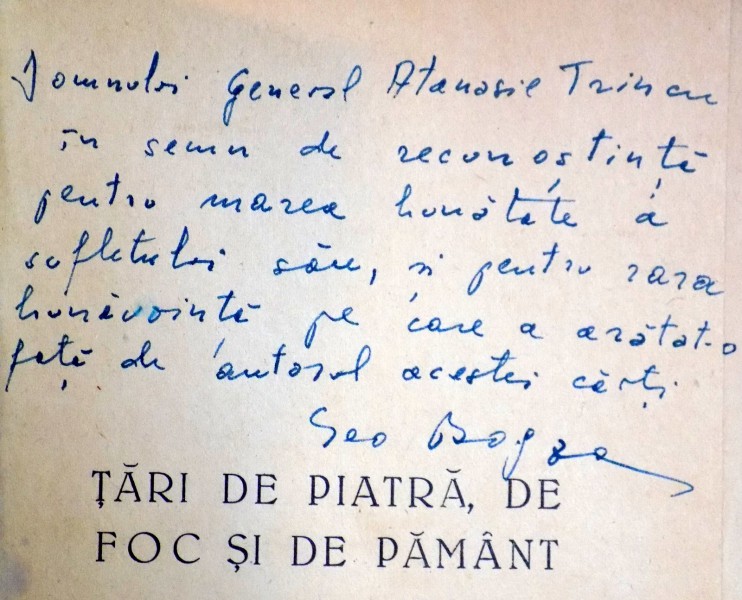 Domnului General Atanasie Trincu
în semn de recunoștință
pentru marea bunătate a
sufletului său, și pentru rara
bunăvoință pe care a arătat-o
față de autorul acestei cărți
Geo Bogza
ȚĂRI DE PIATRĂ, DE
FOC ȘI DE PĂMÂNT